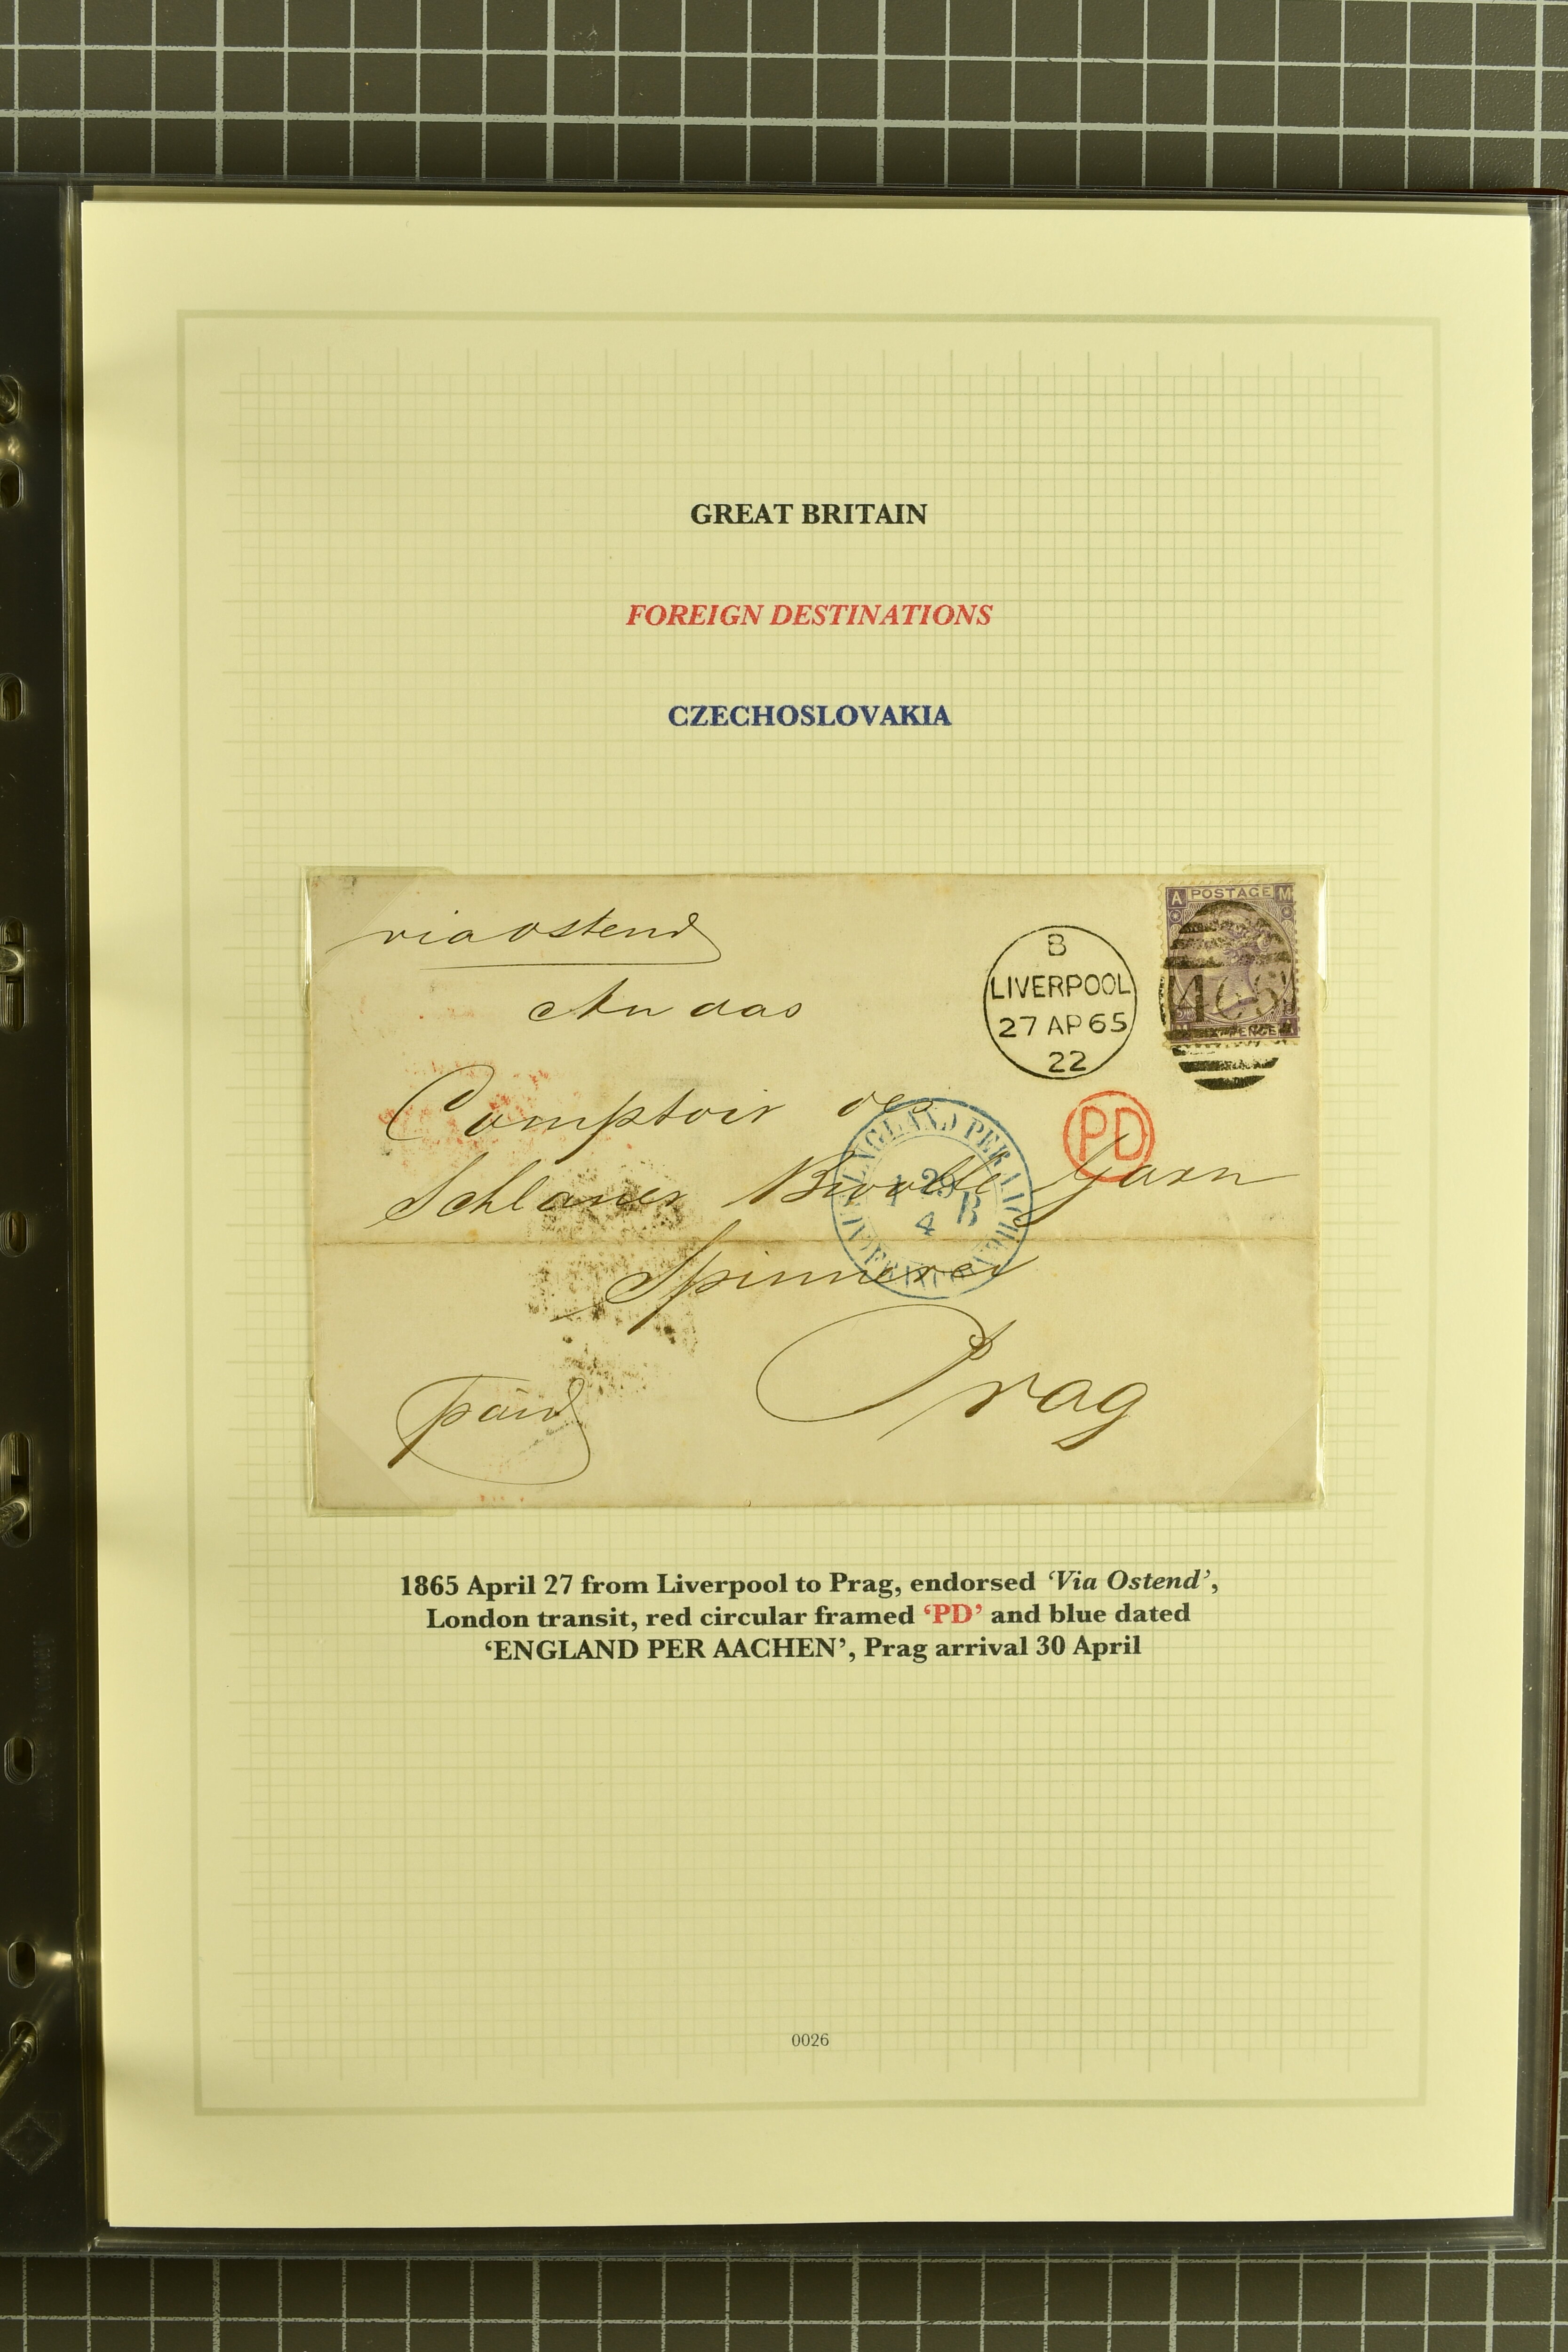 GREAT BRITAIN
FOREIGN DESTINATIONS
CZECHOSLOVAKIA
via ostend
An das
Comptoir des
Schlaner Bwolle Garn
Spinnerei
Prag
paid
B
LIVERPOOL
27 AP 65
22
A POSTAGE M
SIXPENCE
PD
ENGLAND PER AACHEN
29
4 B
FRANCO
1865 April 27 from Liverpool to Prag, endorsed ‘Via Ostend’,
London transit, red circular framed ‘PD’ and blue dated
‘ENGLAND PER AACHEN’, Prag arrival 30 April
0026